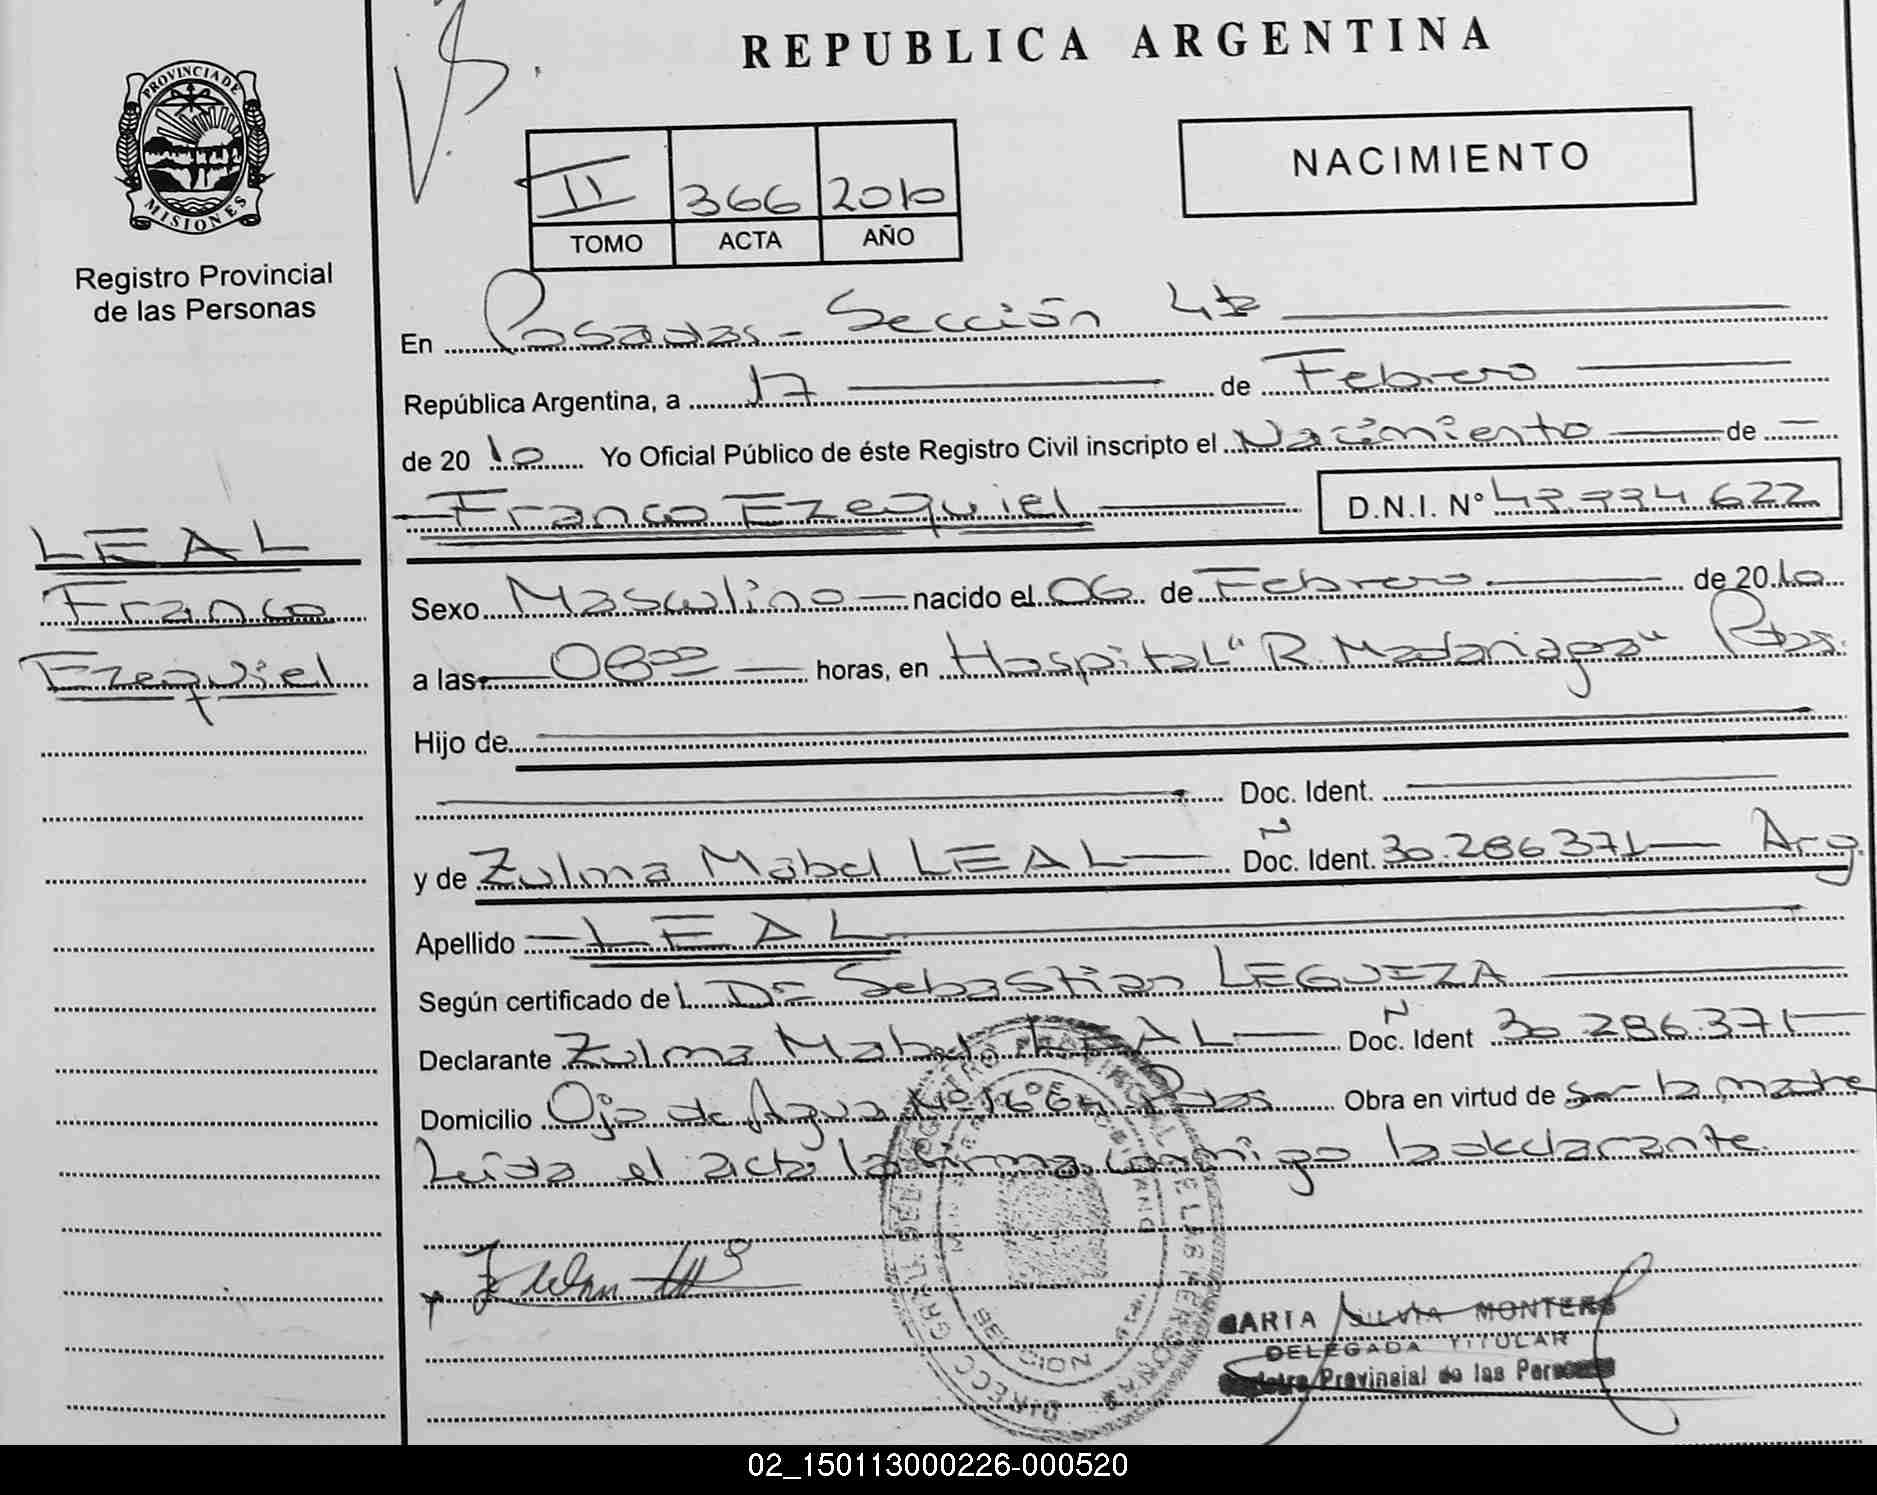 REPUBLICA ARGENTINA
PROVINCIA DE
MISIONES
Registro Provincial
de las Personas
II 366 2010
TOMO ACTA AÑO
NACIMIENTO
En Posadas - Sección 4ta
República Argentina, a 17 de Febrero
de 2010 Yo Oficial Público de éste Registro Civil inscripto el Nacimiento de
Franco Ezequiel D.N.I. Nº 622
LEAL
Franco
Ezequiel
Sexo Masculino nacido el 06 de Febrero de 2010
a las horas, en Hospital "R. Madariaga" Pdas.
Hijo de
Doc. Ident.
y de Zulma Mabel LEAL Doc. Ident. 30.286371 Arg.
Apellido LEAL
Según certificado de l Dr Sebastian LEGUIZA
Declarante Zulma Mabel LEAL Doc. Ident 30.286.371
Domicilio Ojo de Agua Pdas Obra en virtud de ser la madre
Leída el acta la firma conmigo la declarante.
MARIA SILVIA MONTERO
DELEGADA TITULAR
Registro Provincial de las Personas
02_150113000226-000520